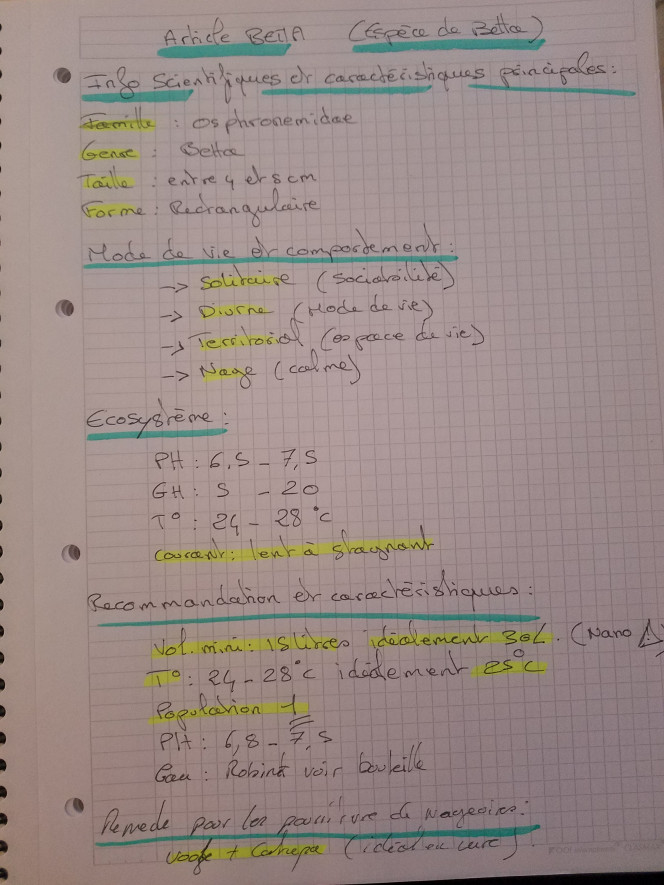 Article BETTA (Espèce de Betta)
Info Scientifiques et caractéristiques principales :
Famille : Osphronemidae
Genre : Betta
Taille : entre 4 et 8 cm
Forme : Rectangulaire
Mode de vie et comportement :
-> Solitaire (Sociabilité)
-> Diurne (Mode de vie)
-> Territorial (espace de vie)
-> Nage (calme)
Ecosystème :
PH : 6,5 - 7,5
GH : 5 - 20
T° : 24 - 28 °c
courant : lent à stagnant
Recommandation et caractéristiques :
Vol. mini : 15 litres idéalement 30L. (Nano
T° : 24 - 28°c idéalement 25°C
Population 1
PH : 6,8 - 7,5
Eau : Robinet voir bouteille
Remede pour les pourriture de nageoires :
+ Catappa (idéal en cure)